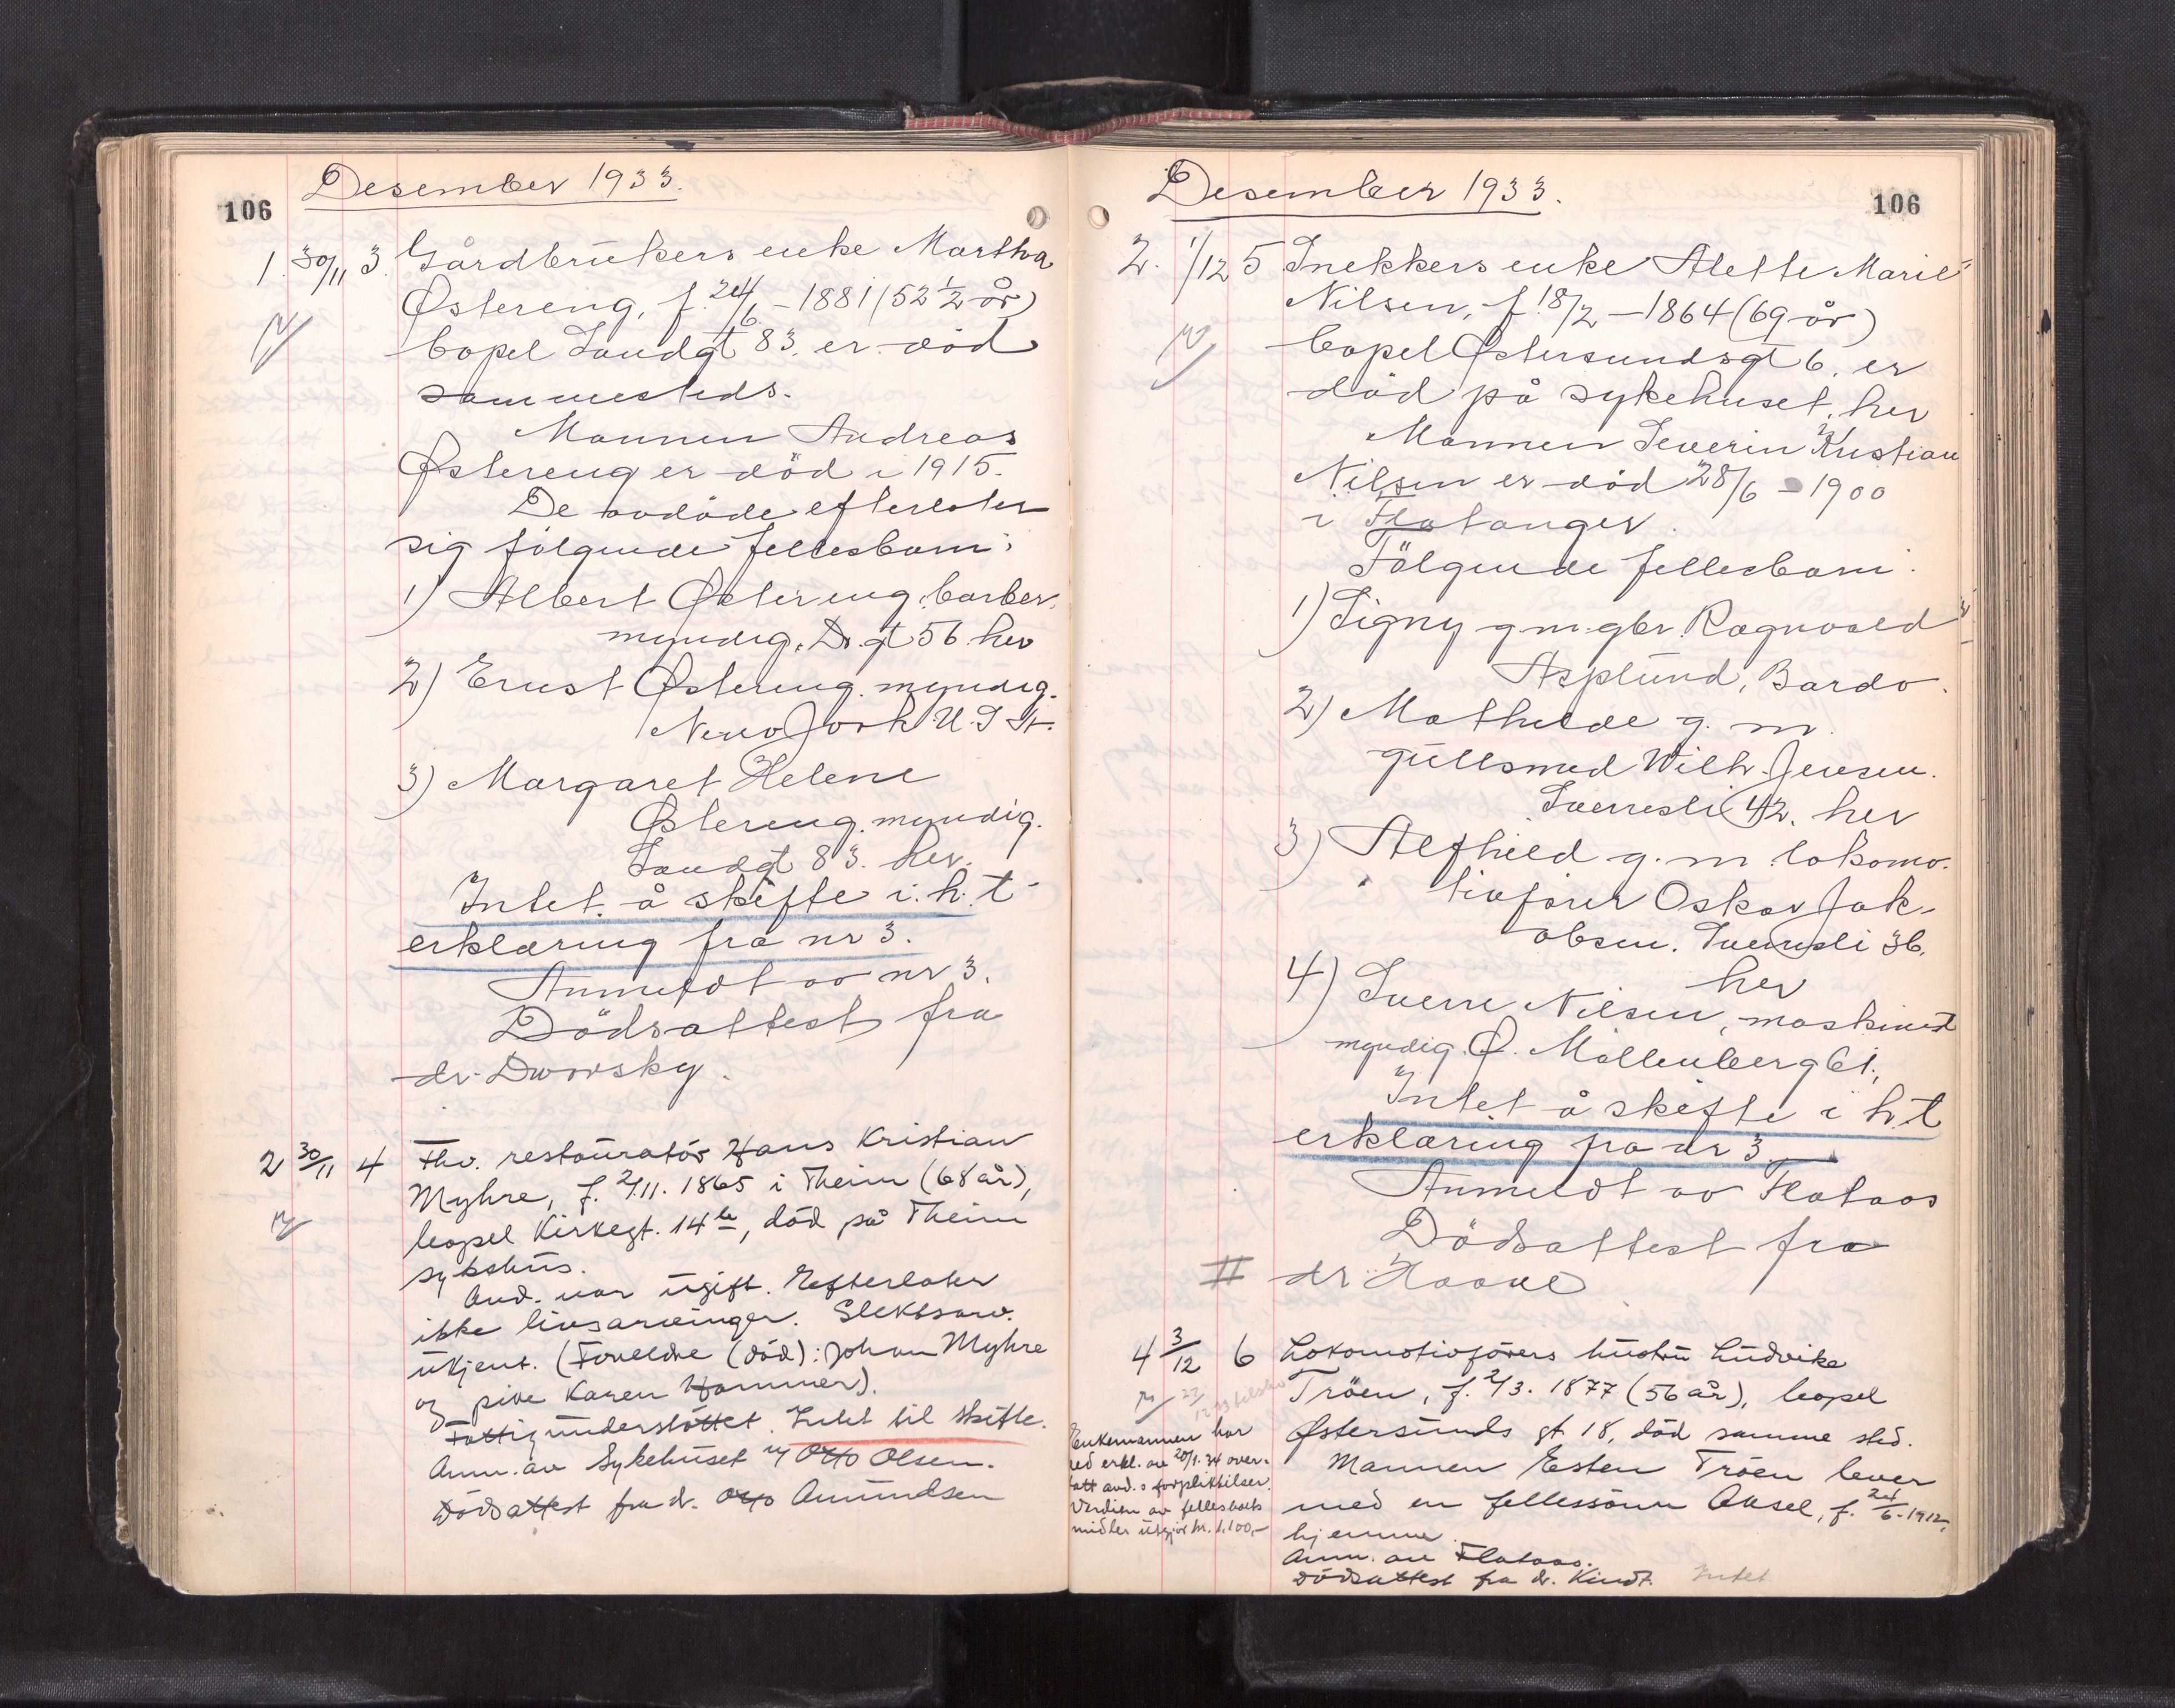 106
Desember 1933.
1. 30/11 3. Gårdbrukers enke Martha
Östereng, f. 24/6 - 1881 (52 1/2 år)
bopel Sandgt 83. er död
sammesteds.
Mannen Andreas
Östereng er död i 1915.
De avdöde efterlater
sig fölgende fellesbarn:
1) Albert Östereng, barber.
myndig. Dr. gt 56 her
2) Ernst Östereng. myndig.
New York U. S St.
3) Margaret Helene
Östereng. myndig.
Sandgt 83. her.
Intet å skifte i. h. t
erklæring fra nr 3.
Anmeldt av nr 3.
Dödsattest fra
dr. Dworsky.
2 30/11 4 Fhv. restauratör Hans Kristian
Myhre, f. 2/11. 1865 i Theim (68 år),
bopel Kirkegt. 14 b, död på Theim
sykehus.
Avd. var ugift. Efterlater
ikke livsarvinger. Slektsarv.
ukjent. (Foreldre (död): Johan Myhre
og pike Karen Hammer).
Fattigunderstöttet. Intet til skifte.
Anm. av Sykehuset v/ Otto Olsen.
Dödsattest fra dr. Otto Amundsen
106
Desember 1933.
2. 1/12 5 Snekkers enke Alette Marie
Nilsen, f. 18/2 - 1864 (69 år)
bopel Östersundsgt 6. er
död på sykehuset, her
Mannen Severin Kristian
Nilsen er död 28/6 - 1900
i Flatanger.
Fölgende fellesbarn:
1) Signy g.m. gbr. Ragnvald
Asplund, Bardo.
2) Mathilde g. m.
gullsmed Wilh. Jensen.
Sverresli 42. her
3) Alfhild g. m. lokomo-
tivförer Oskar Jak-
obsen. Sverresli 36.
her
4) Sverre Nilsen, maskinist
myndig. Ö. Möllenberg 61.,
Intet å skifte i h. t
erklæring fra nr 3.
Anmeldt av Flataas
Dödsattest fra
dr Haave
4 3/12 6 Lokomotivförers hustru Ludvika
Tröen, f. 2/3. 1877 (56 år), bopel
Östersunds gt. 18, död samme sted.
Mannen Esten Tröen lever
med en fellessönn Aksel, f. 24/6-1912,
hjemme.
Anm. av Flataas.
Dödsattest fra dr. Kindt. Intet
Enkemannen har
ved erkl. av 20/1. 34 over-
tatt avd.s forpliktelser.
Verdien av fellesboets
midler utgjör kr. 1.100,-